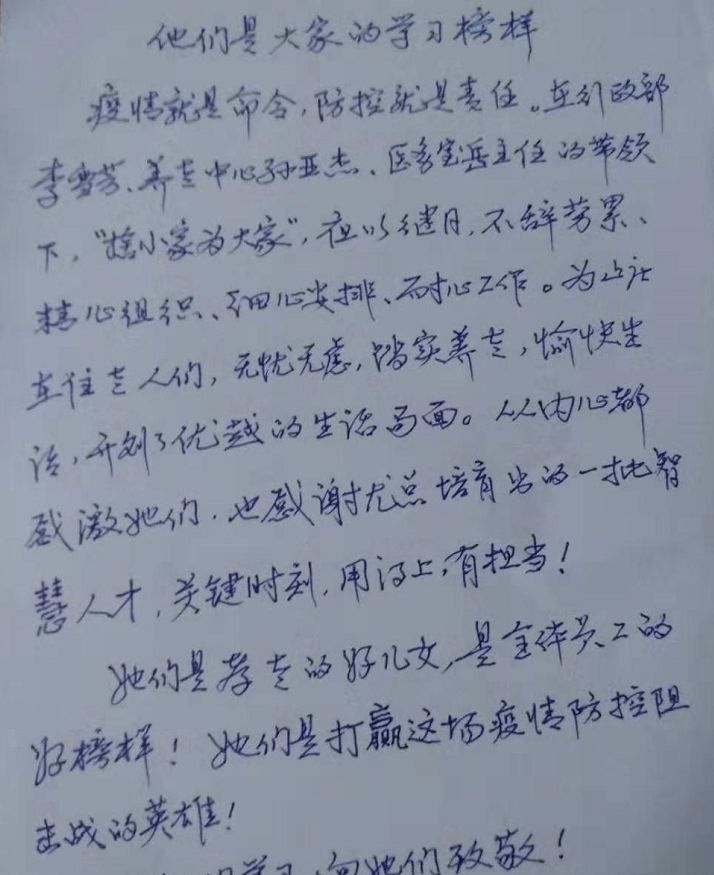 他们是大家的学习榜样
疫情就是命令,防控就是责任。在行政部
李雪芳、养老中心孙亚杰、医务室岳主任的带领
下,“舍小家为大家”,夜以继日,不辞劳累、
精心组织、细心安排、耐心工作。为让社
在住老人们,无忧无虑,踏实养老,愉快生
活,开创了优越的生活局面。从内心都
感激她们.也感谢尤总培育出的一批智
慧人才,关键时刻,用得上,有担当!
她们是孝老的好儿女,是全体员工的
好榜样!她们是打赢这场疫情防控阻
击战的英雄!
学习,向她们致敬!